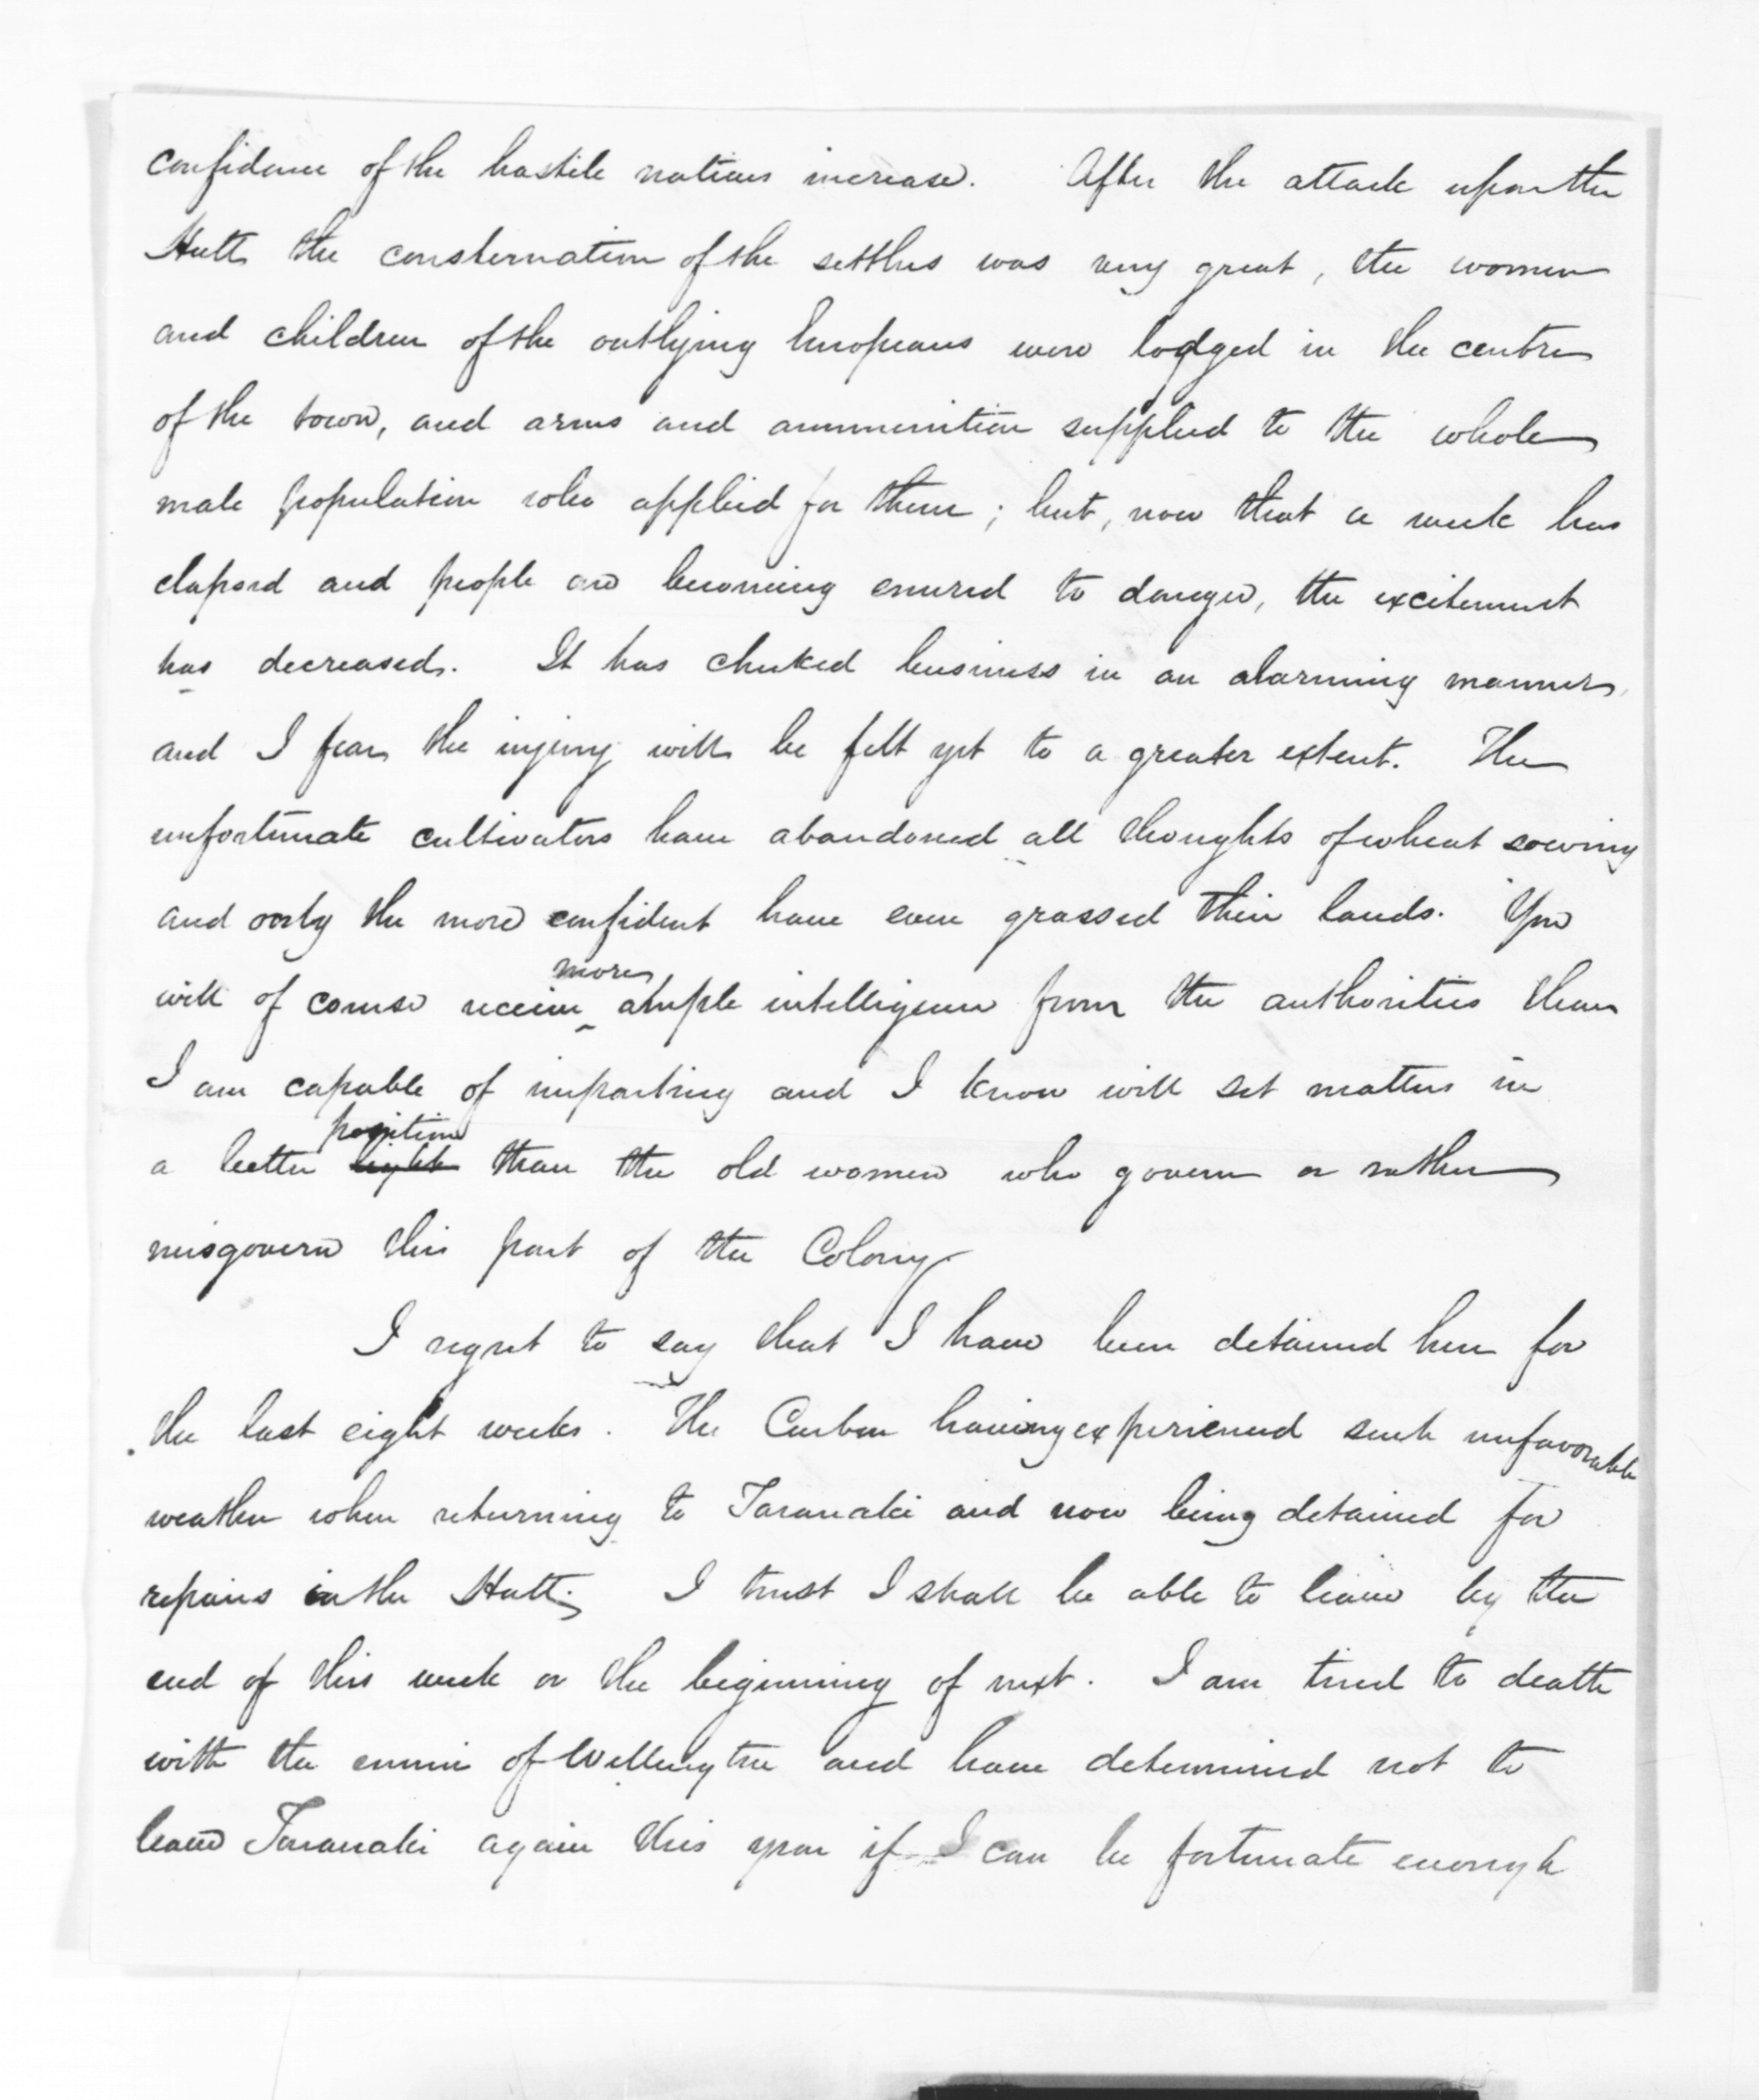 confidence of the hostile natives increase. After the attack upon the
Hutt the consternation of the settlers was very great, the women
and children of the outlying Europeans were lodged in the centre
of the town, and arms and ammunition supplied to the whole
male population who applied for them; but, now that a week has
elapsed and people are becoming enured to danger, the excitement
has decreased. It has checked business in an alarming manner,
and I fear the injury will be felt yet to a greater extent. The
unfortunate cultivators have abandoned all thoughts of wheat sowing
and only the more confident have even grassed their lands. You
more
will of course receive ample intelligence from the authorities than
I am capable of imparting and I know will set matters in
position
a better light than the old women who govern or rather
misgovern this part of the Colony
I regret to say that I have been detained here for
the last eight weeks. The Carbon having experienced such unfavorable
weather when returning to Taranaki and now being detained for
repairs in the Hutt. I trust I shall be able to leave by the
end of this week or the beginning of next. I am tired to death
with the ennui of Wellington and have determined not to
leave Taranaki again this year if I can be fortunate enough